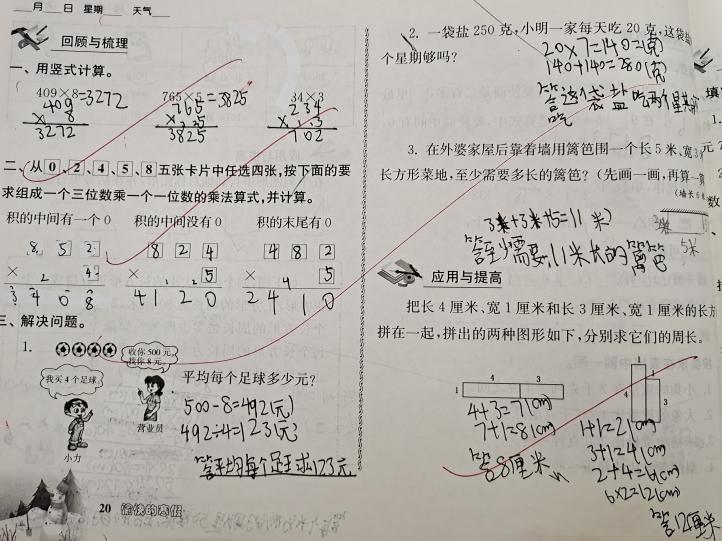 月 日 星期 天气
回顾与梳理
一、用竖式计算。
409×8=3272
409
× 8
3272
765×5=3825
765
× 5
3825
34×3
234
702
二、从 0、2、4、5、8 五张卡片中任选四张,按下面的要
求组成一个三位数乘一个一位数的乘法算式,并计算。
积的中间有一个0 积的中间没有0 积的末尾有0
8 5 2
×
3 4 0 8
8 2 4
× 5
4 1 2 0
4 8 2
× 5
2 4 1 0
三、解决问题。
1.
收你500元,
找你8元。
我买4个足球。
营业员
小力
平均每个足球多少元?
500-8=492(元)
492÷4=123(元)
答:平均每个足球123元
20 愉快的寒假
2. 一袋盐250克,小明一家每天吃20克,这袋盐
个星期够吗?
20×7=140(克)
140+140=280(克)
答这袋盐吃两个星期
3. 在外婆家屋后靠着墙用篱笆围一个长5米、宽3
长方形菜地,至少需要多长的篱笆?(先画一画,再算一算
3米
5米
3米+3米+5=11(米)
答至少需要11米长的篱笆
应用与提高
把长4厘米、宽1厘米和长3厘米、宽1厘米的长方
拼在一起,拼出的两种图形如下,分别求它们的周长。
1 4 3
1
4
3
4+3=7(cm)
7+1=8(cm)
答8厘米
1+1=2(cm)
3+1=4(cm)
2+4=6(cm)
6×2=12(cm)
答12厘米
填
1.